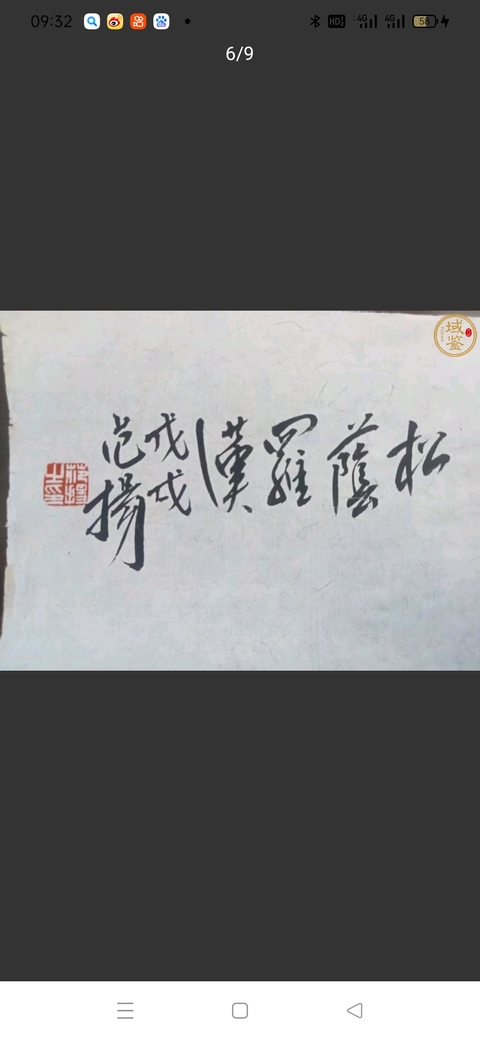 09:32
HD1 4G 4G 58
6/9
域鉴
松蔭羅漢
戊戌
范揚
范揚之印